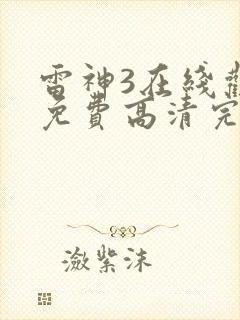 雷神3在线
免費高清完
潋紫沫